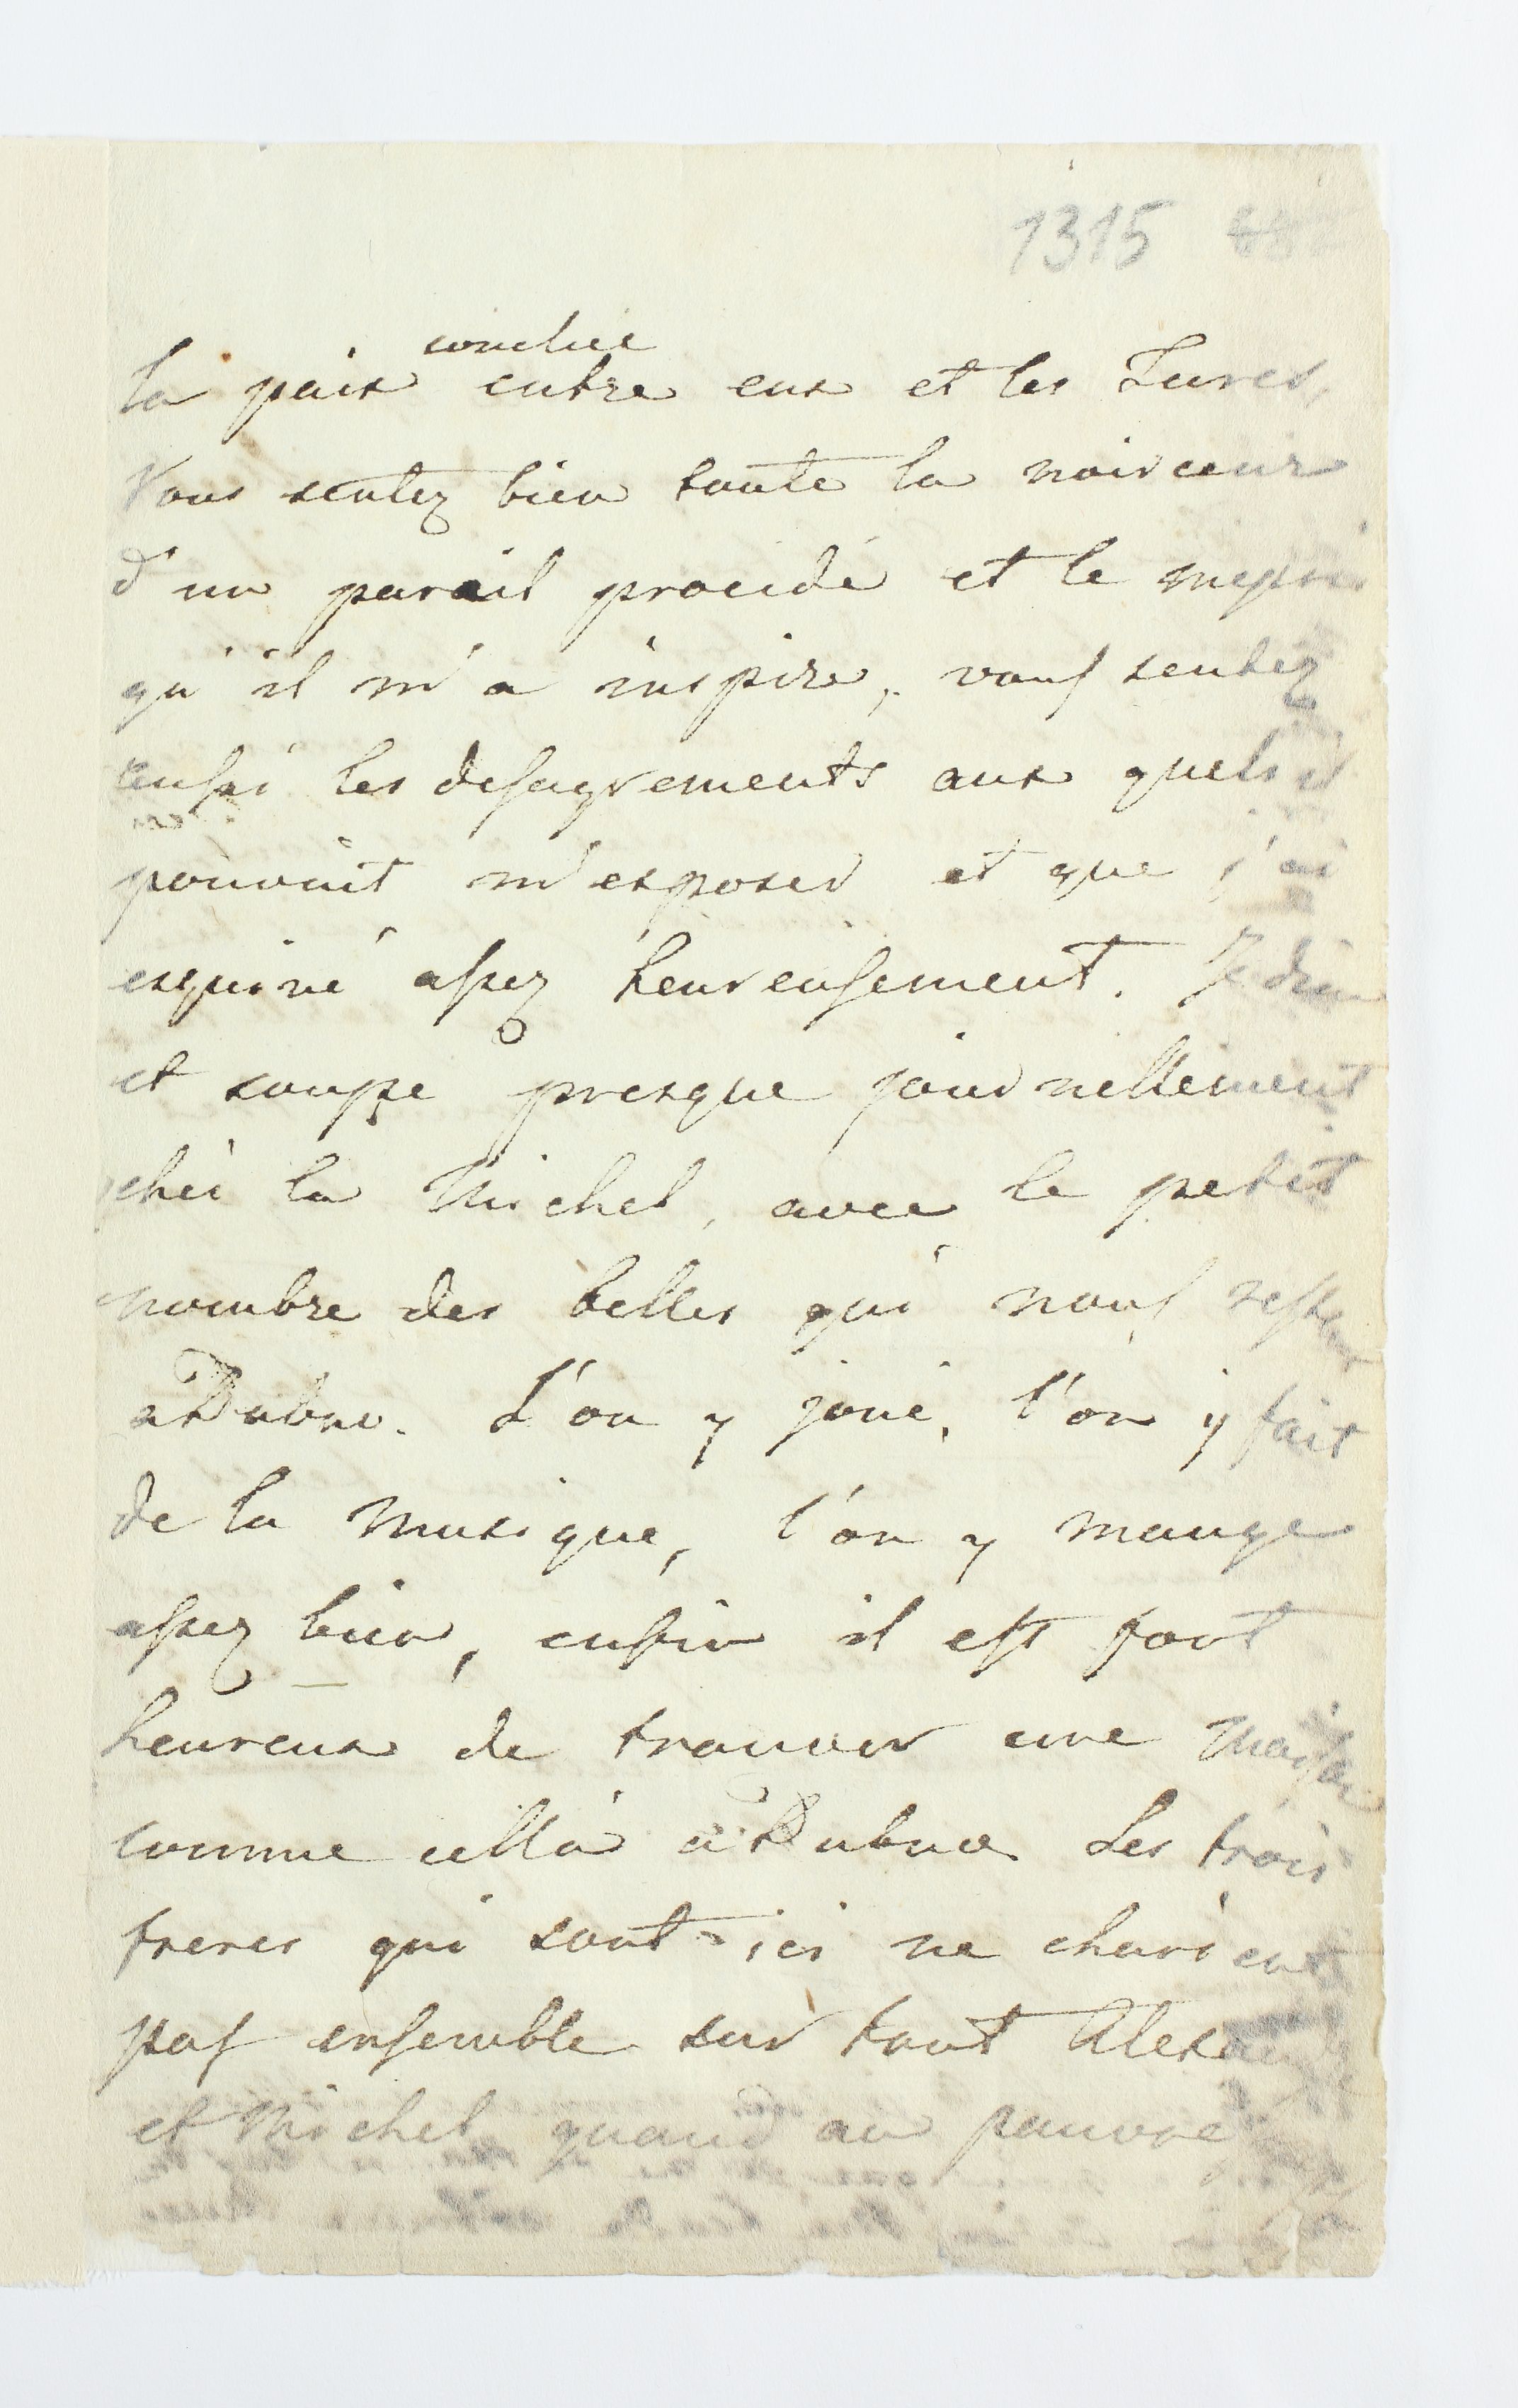 1315
conclue
la paix entre eux et les Turcs,
Vous sentez bien toute la noirceur
d'un pareil procidé et le mepris
qu'il m'a inspire, vous sentez
aussi les desagrements aux quels il
pouvait m'exposer et que j'ai
esquivé assez heureusement. Je dine
et soupe presque journellement
chéz la Michel, avec le petit
nombre des belles qui nous restent
a Dubno. L'on y joue, l'on y fait
de la musique, l'on y mange
assez bien, enfin il est fort
heureux de trouver une maison
comme cella à Dubno. Les trois
freres qui sont ici ne charient
pas ensemble sur tout Alexandre
et Michel quand au pauvre